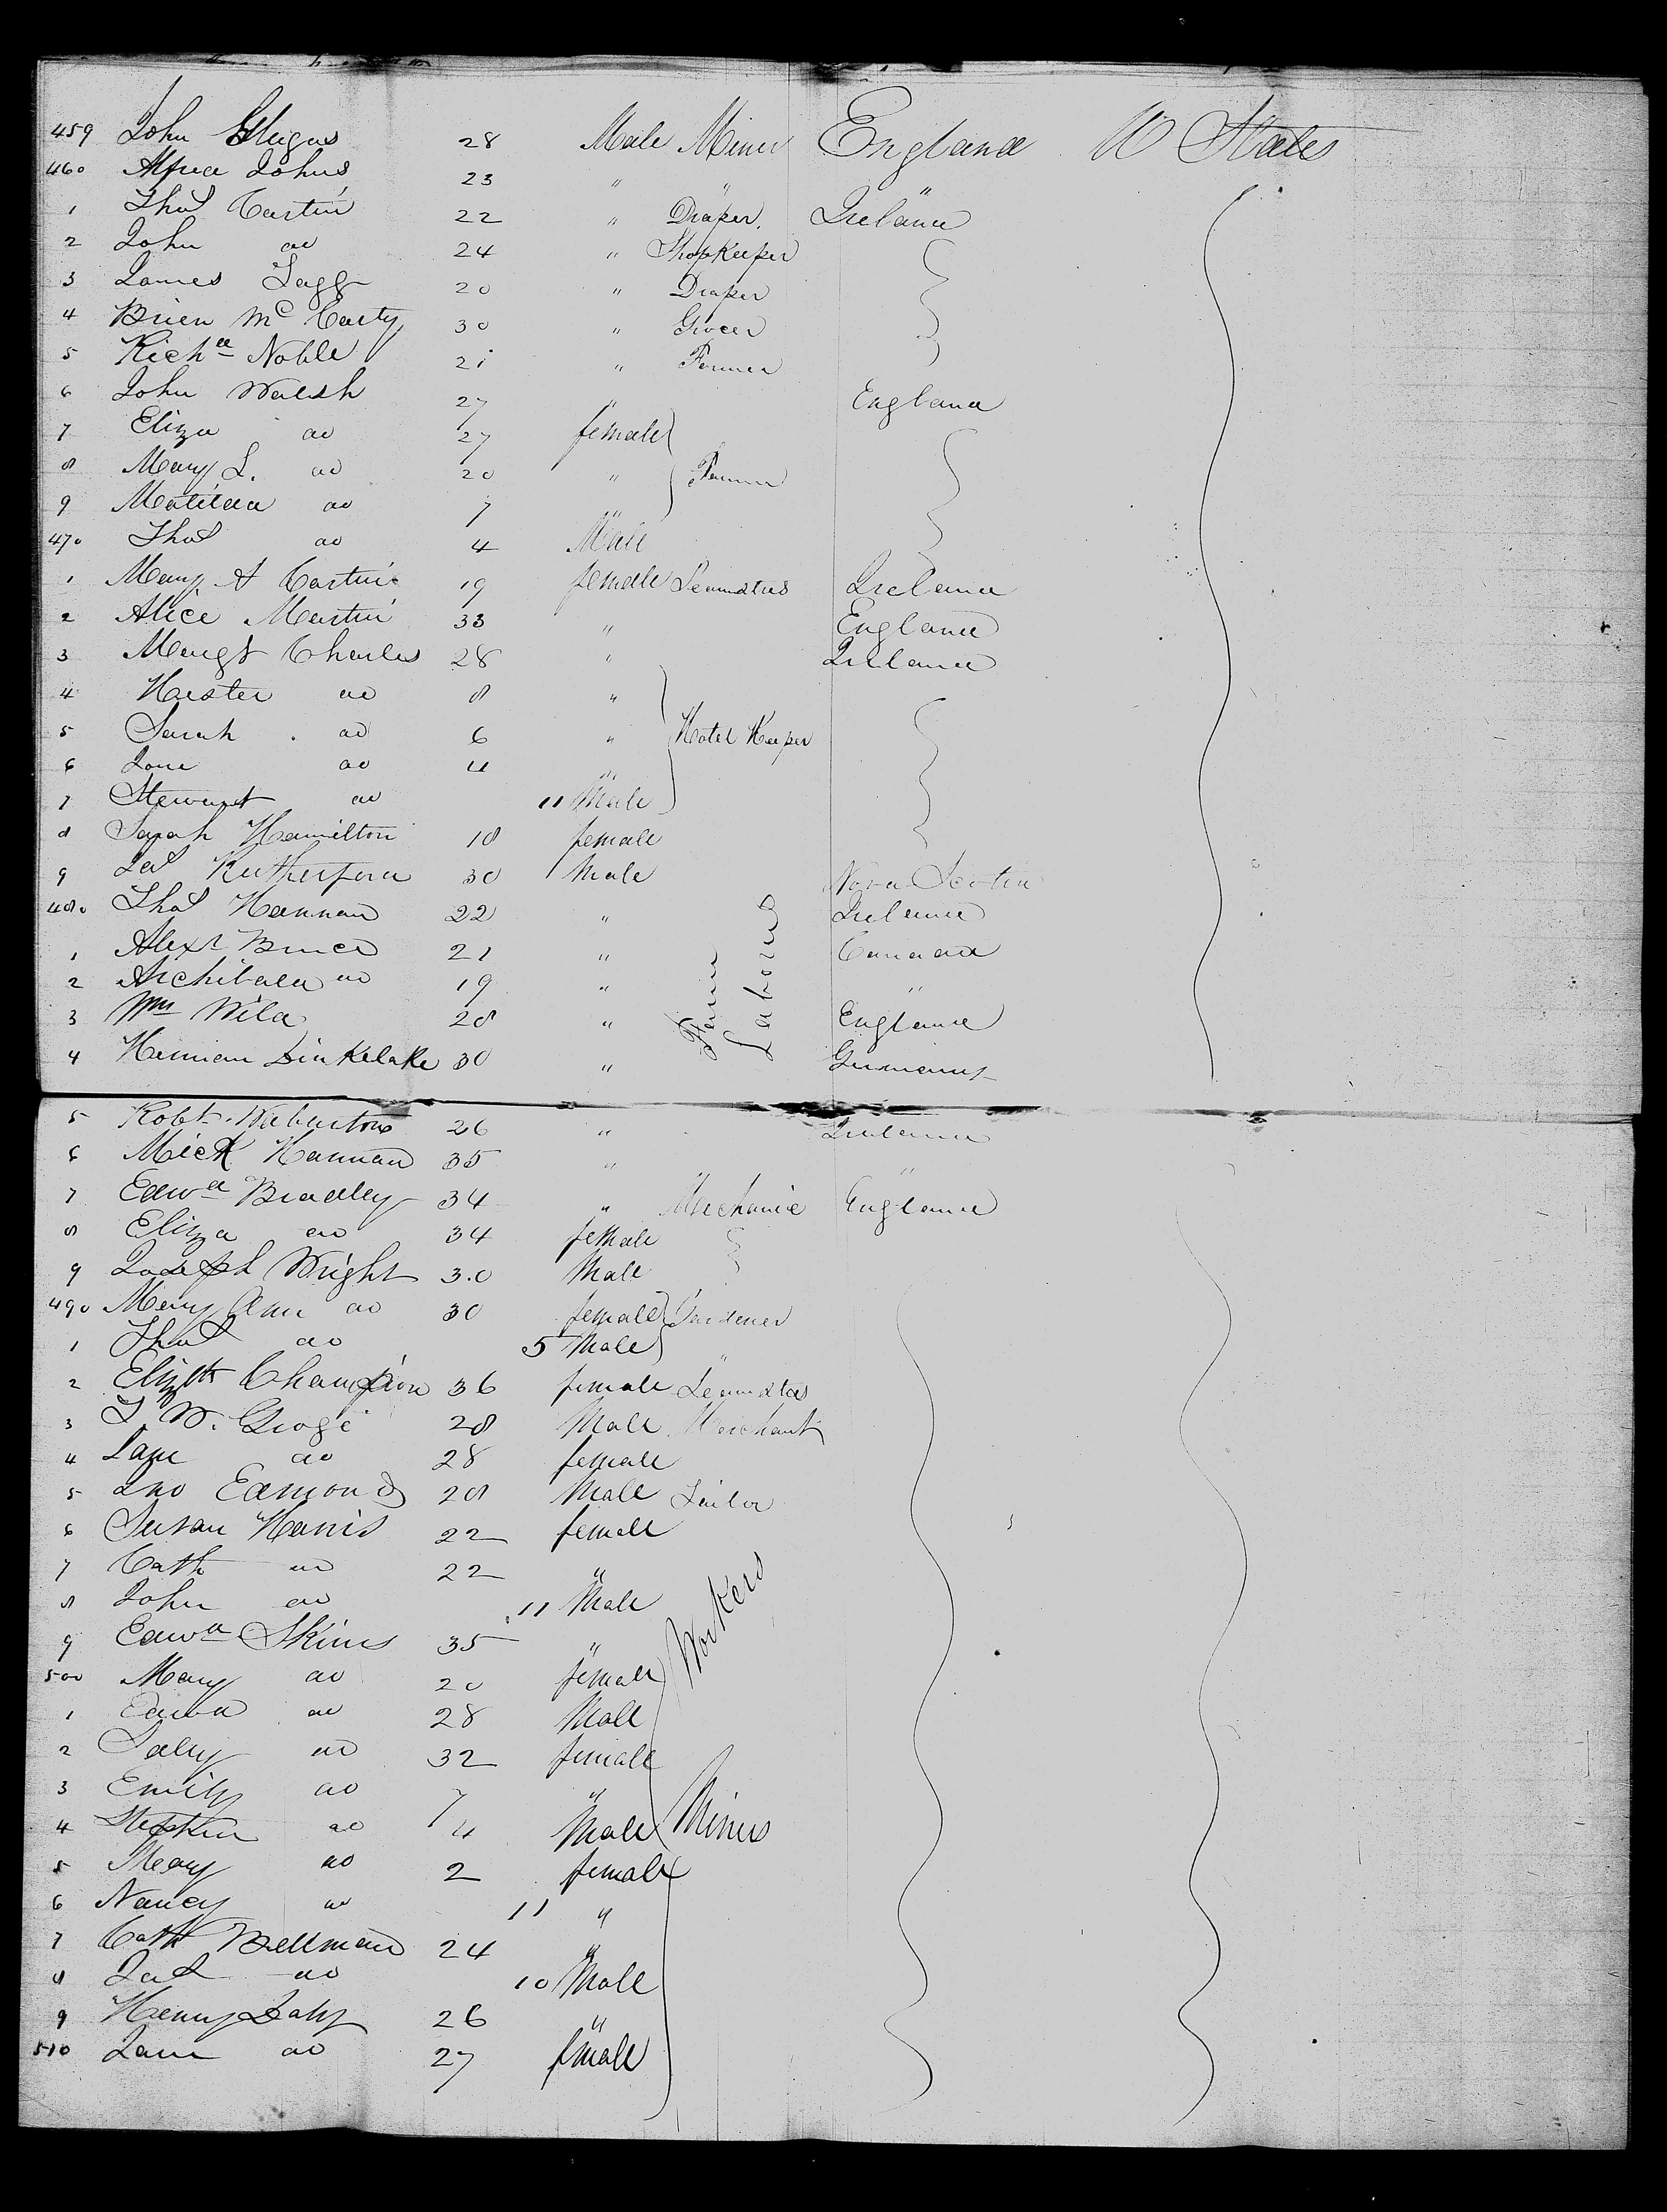 459 John 28 Male Miner England U States
460 Alfred Johns 23 " " "
1 Thos Castin 22 " Draper. Ireland
2 John do 24 " Shopkeeper
3 James Tagg 20 " Draper
4 Brien Mc Carty 30 " Grocer
5 Richd Noble 21 " Farmer
6 John Walsh 27 " England
7 Eliza do 27 female
8 Mary L. do 20 " Farmer
9 Matilda do 7 "
470 Thos do 4 Male
1 Mary A Castin 19 female Seamstres Ireland
2 Alice Martin 33 " England
3 Margt Charles 28 " Ireland
4 Hester do 8 "
5 Sarah do 6 " Hotel Keeper
6 Jane do 4 "
7 Stewart do 11 Male
8 Sarah Hamilton 18 female
9 Jas Rutherford 30 Male Nova Scotia
480 Thos Hannan 22 " Ireland
1 Alexr Bruce 21 " Canada
2 Archibald do 19 " "
3 Wm Wild 28 " Farm Labores England
4 Herman 30 " Germany
5 Robt. Warburton 26 " Ireland
6 Mick Hannan 35 " "
7 Edwd Bradley 34 " Mechanic England
8 Eliza do 34 female
9 Joseph Wright 30 Male
490 Mary Ann do 30 female Gardener
1 Thos do 5 Male
2 Elizth Champion 36 female Seamstres
3 28 Male Merchant
4 Jane do 28 female
5 Jno Edmonds 28 Male Tailor
6 Susan Harris 22 female
7 Cath do 22 "
8 John do 11 Male
9 Edwd Skins 35 " Workers
500 Mary do 20 female
1 Edwd do 28 Male
2 do 32 female
3 Emily do 7 "
4 Stephen do 4 Male Miners
5 Mary do 2 female
6 Nancy do 11 "
7 Cath Bellman 24 "
8 Jas do 10 Male
9 Henry Daly 26 "
510 Jane do 27 female